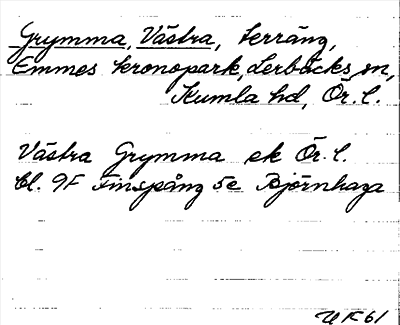 Grymma, Västra, terräng,
Emmes kronopark, Lerbäcks sn,
Kumla hd, Ör. l.
Västra Grymma ek Ör. l.
bl. 9F Finspång 5e Björnhaga
UK 61